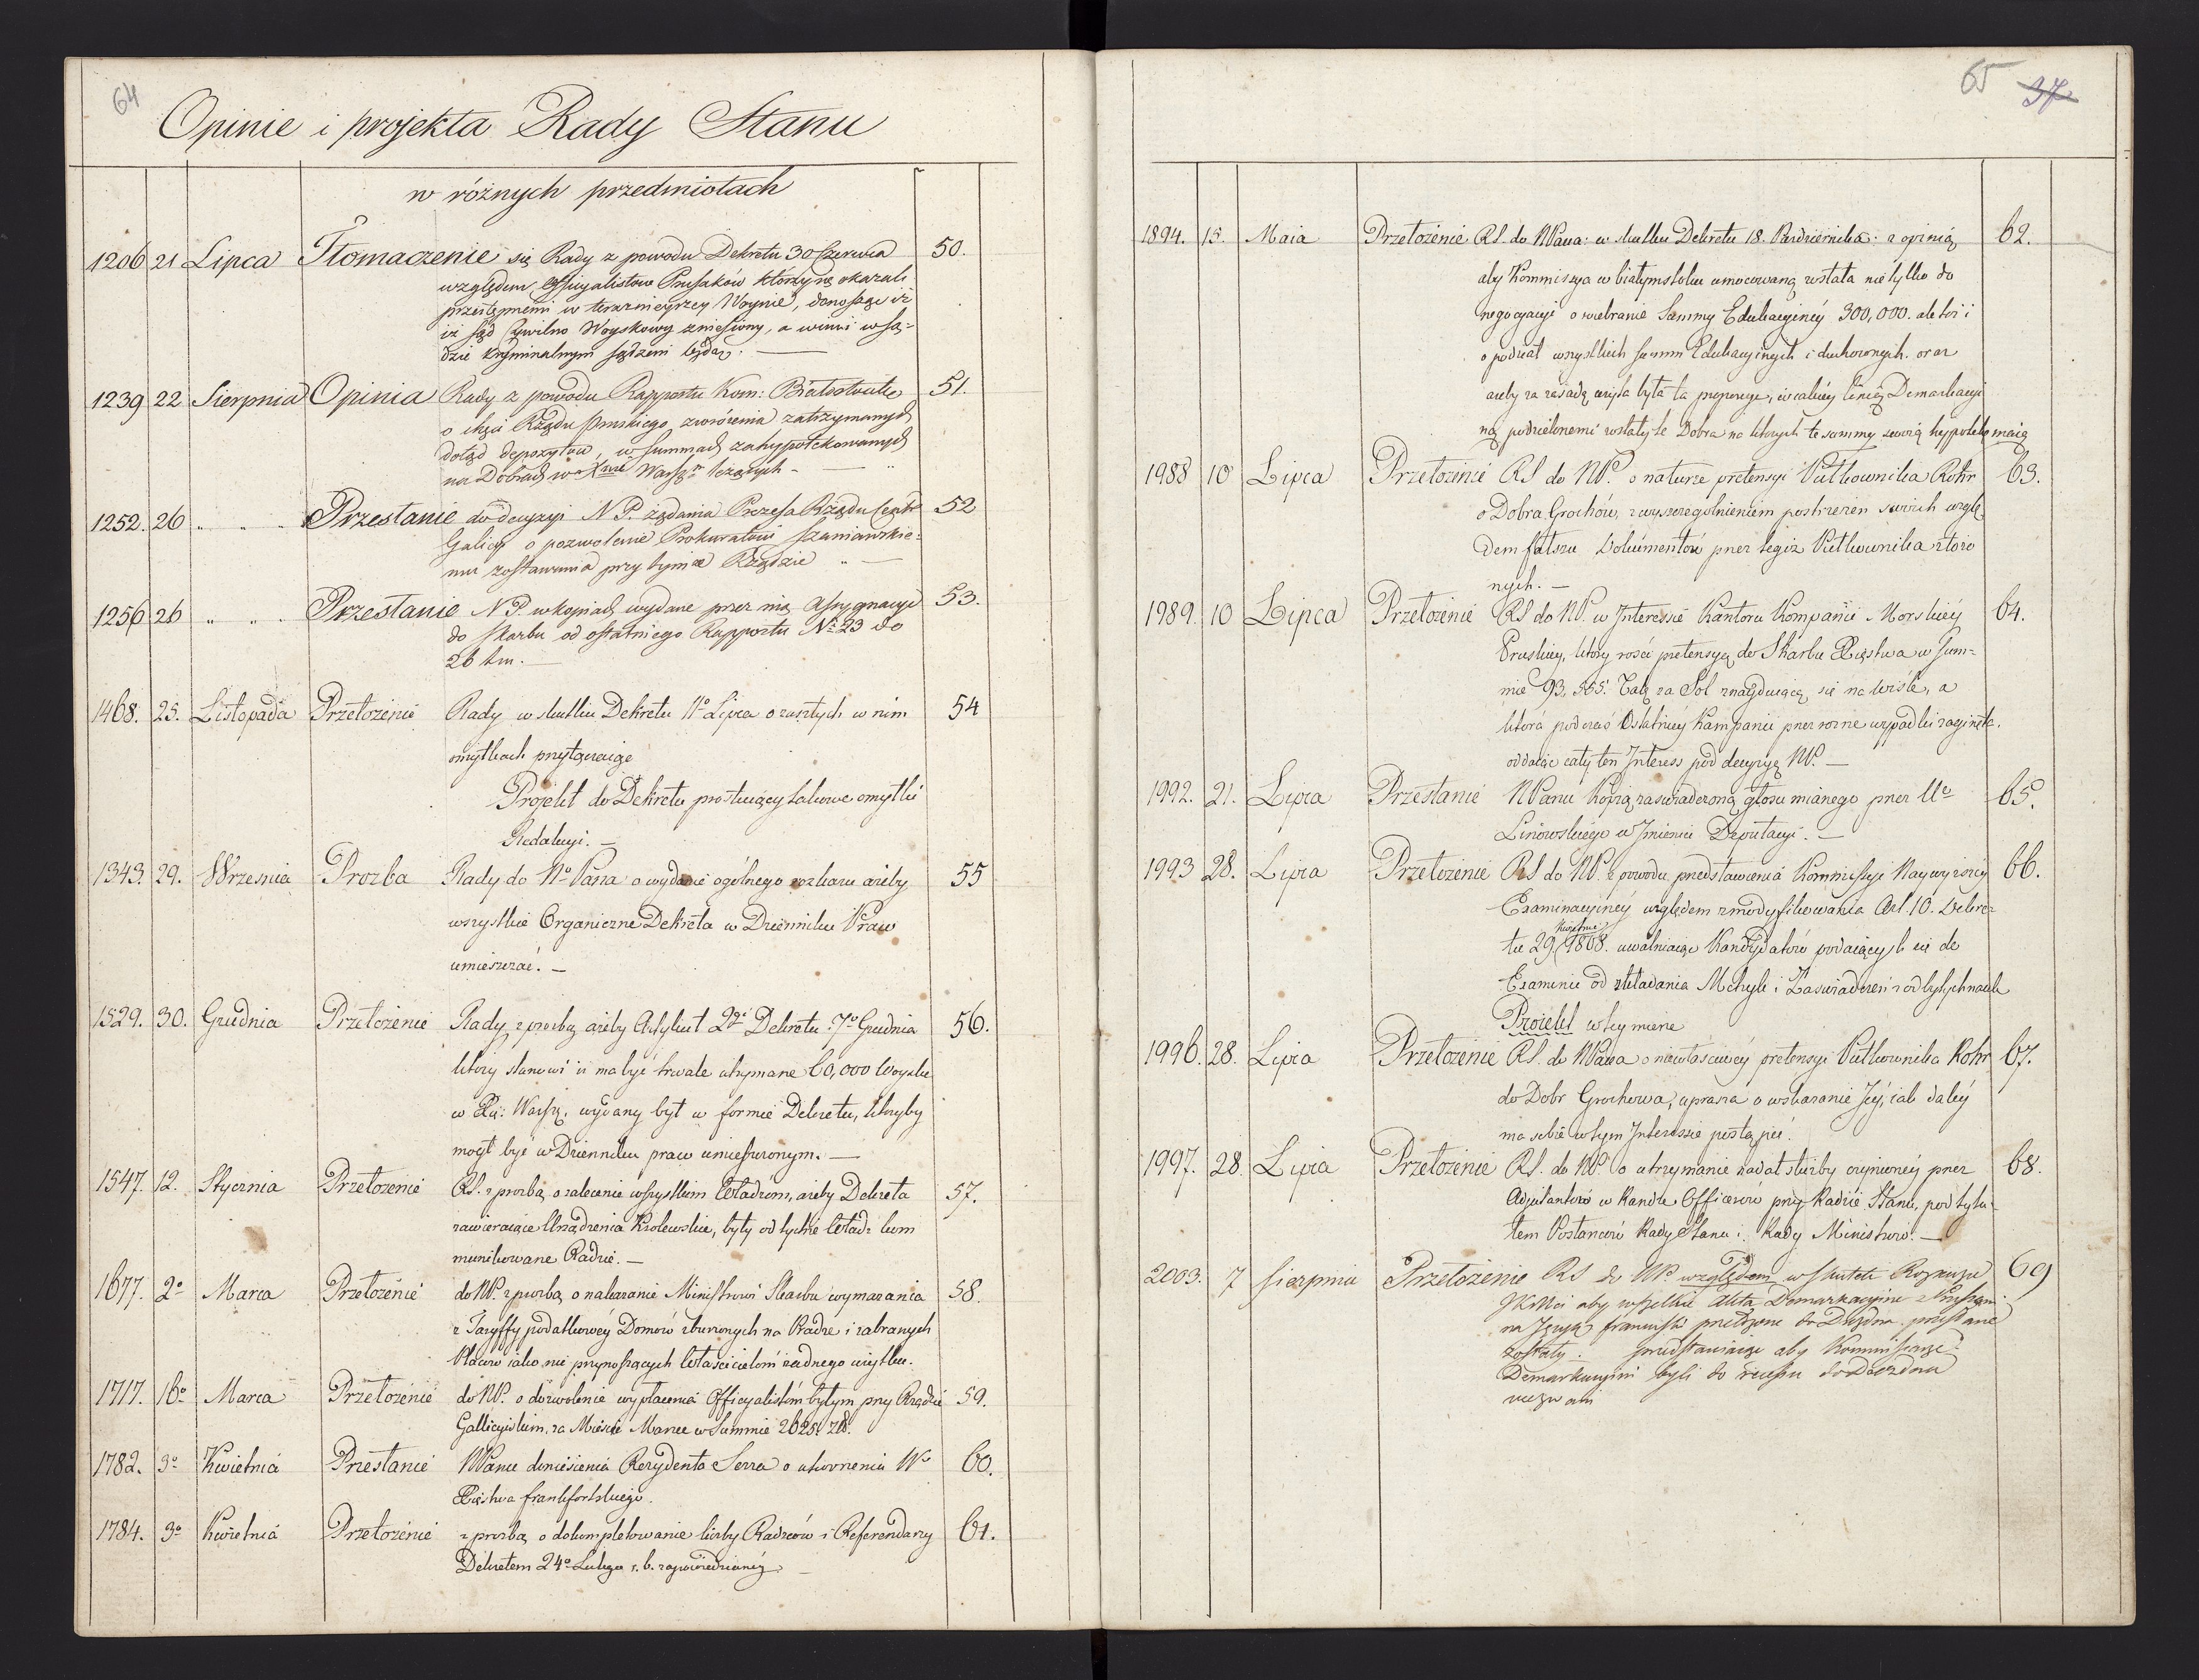 64
Opinie i projekta Rady Stanu
w różnych przedmiotach
1206 21 Lipca Tłomaczenie się Rady z powodu Dekretu 30 Czerwca 50.
względem Officyalistow Prusaków którzy się okazali
przestępnemi w teraznieyszey Woynie, donosząc iż
iż Sąd Cywilno Woyskowy zniesiony, a winni w Są-
dzie kryminalnym sądzeni będą. —
1239 22 Sierpnia Opinia Rady z powodu Rapportu Kom: Białostockie 51.
o chęci Rządu Pruskiego zwrócenia zatrzymanych
dotąd depozytow, w summach zahypotekowanych
na Dobrach w Xwie Warsz: leżących - —
1252. 26 „ „ Przesłanie do decyzyi N. P. żądania Prezesa Rządu Centr 52
Galicyi o pozwolenie Prokuratowi Szaniawskie-
mu zostawania przy tymże Rządzie „ —
1256 26 „ „ Przesłanie N. P. w kopiach wydane przez nię Assygnacye 53.
do Skarbu od ostatniego Rapportu N: 23 do
26 t.m. —
1468. 25. Listopada Przełożenie Rady w skutku Dekretu 11o Lipca o zaszłych w nim 54
omyłkach przyłączaiąc
Projekt do Dekretu prostuiący takowe omyłki
Redakcyi. —
1343. 29. Września Prozba Rady do No Pana o wydanie ogólnego rozkazu ażeby 55
wszystkie Organiczne Dekreta w Dzienniku Praw
umieszczać. —
1529. 30. Grudnia Przełożenie Rady, z prozbą ażeby Artykuł 22gi Dekretu 7o Grudnia 56.
który stanowi iż ma być trwale utrzymane 60,000 Woyska
w Xię: Warsz. wydany był w formie Dekretu, któryby
mogł być w Dzienniku praw umieszczonym. —
1547. 12. Stycznia Przełożenie RS. z prozbą o zalecenie wszystkim Władzom, ażeby Dekreta 57.
zawieraiące Urządzenia Krolewskie, były od tychże Władz kom
munikowane Radzie. —
1677. 2o Marca Przełożenie do NP. z prozbą o nakazanie Ministrowi Skarbu wymazania 58.
z Taryffy podatkowéy Domów zburzonych na Pradze i zabranych
Placow iako nie przynoszących Właścicielom żadnego użytku.
1717. 16o Marca Przełożenie do NP. o dozwolenie wypłacenia Officyalistóm byłym przy Rządzie 59.
Gallicyiskim, za Miesiąc Marzec w Summie 2625. złł.
1782. 3o Kwietnia Przesłanie NPanu doniesienia Rezydenta Serra o utworzeniu Wo 60.
Xięstwa frankfortskiego.
1784. 3o Kwietnia Przełożenie z prozbą o dokompletowanie liczby Radzców i Referendarzy 61.
Dekretem 24o Lutego r. b. zapowiedzianéy —
65 37
1894. 15. Maia Przełożenie RS. do NPana: w skutku Dekretu 18. Pazdziernika: z opinią, 62.
aby Kommissya w białymstoku umocowaną została nie tylko do
negocyacyi o odebranie Summy Edukacyinéy 300,000. ale toż i
o podział wszystkich summ Edukacyinych i duchownych. oraz
ażeby za zasadę wzięta była ta proporcya, w iakiéy linią Demarkacyi
ną podzielonemi zostały te Dobra na których te summy swoią hyppotekę maią
1988 10 Lipca Przełożenie RS do NP. o naturze pretensyi Pułkownika Rohr 63.
o Dobra Grochów, z wyszczegolnieniem postrzeżeń swoich wzglę
dem fałszu Dokumentów przez tegoż Pułkownika złożo
nych. —
1989. 10 Lipca Przełożenie RS do NP. w Interessie Kantoru Kompanii Morskiéy 64.
Pruskiéy, który rości pretensyą do Skarbu Xięstwa w Sum-
mie 93,565. Tal. za Sol znayduiącą się na wiśle, a
która podczas Ostatniéy Kampanii przez rożne wypadki zaginęła.
oddaiąc cały ten Interess pod decyzyą NP. —
1992. 21. Lipca Przesłanie NPanu Kopią zaświadczoną głosu mianego przez Uo 65.
Linowskiego w Imieniu Deputacyi. —
1993 28. Lipca Przełożenie RS do NP. z powodu przedstawienia Kommissyi Naywyższey 66.
Examinacyinéy względem zmodyfikowania Art. 10. Dekre-
Kwietnia
tu 29. 1808. uwalniaiąc Kandydatów podaiących się do
Examinu od składania Metryk i Zaswiadczeń z odbytych nauk
Projekt w tey mierze
1996. 28. Lipca Przełożenie RS. do NPana o niewłaściwéy pretensyi Pułkownika Rohr 67.
do Dobr Grochowa, uprasza o wskazanie Jéy, iak daléy
ma sobie w tym Interessie postąpić.
1997. 28. Lipca Przełożenie RS. do NP. o utrzymanie nadal służby czynionéy przez 68.
Adjutantów w Randze Officerów przy Radzie Stanu, pod tytu-
łem Posłańców Rady Stanu i Rady Ministrow. —
2003. 7 Sierpnia Przełożenie RS do NP. względem w skutek Rozkazu 69
JKMci aby wszelkie Akta Demarkacyine z Prussami
na Język francuski przełożone do Drezdna przesłane
zostały. przedstawiaiąc aby Kommissarze
Demarkacyini byli do do Drezdna
wezwani